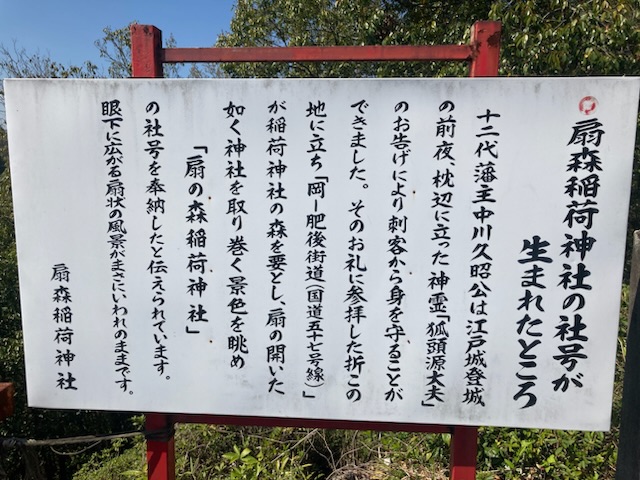 扇森稲荷神社の社号が
生まれたところ
十二代藩主中川久昭公は江戸城登城
の前夜、枕辺に立った神霊「狐頭源太夫」
のお告げにより刺客から身を守ることが
できました。そのお礼に参拝した折この
地に立ち「岡ー肥後街道(国道五十七号線)」
が稲荷神社の森を要とし、扇の開いた
如く神社を取り巻く景色を眺め
「扇の森稲荷神社」
の社号を奉納したと伝えられています。
眼下に広がる扇状の風景がまさにいわれのままです。
扇森稲荷神社